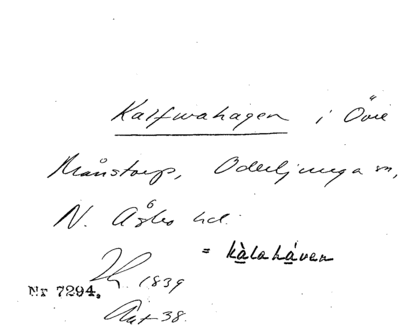 Kalfwahagen i Övre
Månstorp, Oderljunga sn,
N. Åsbo hd.
= kàlaháven
1839
Nr 7294.
Akt 38.